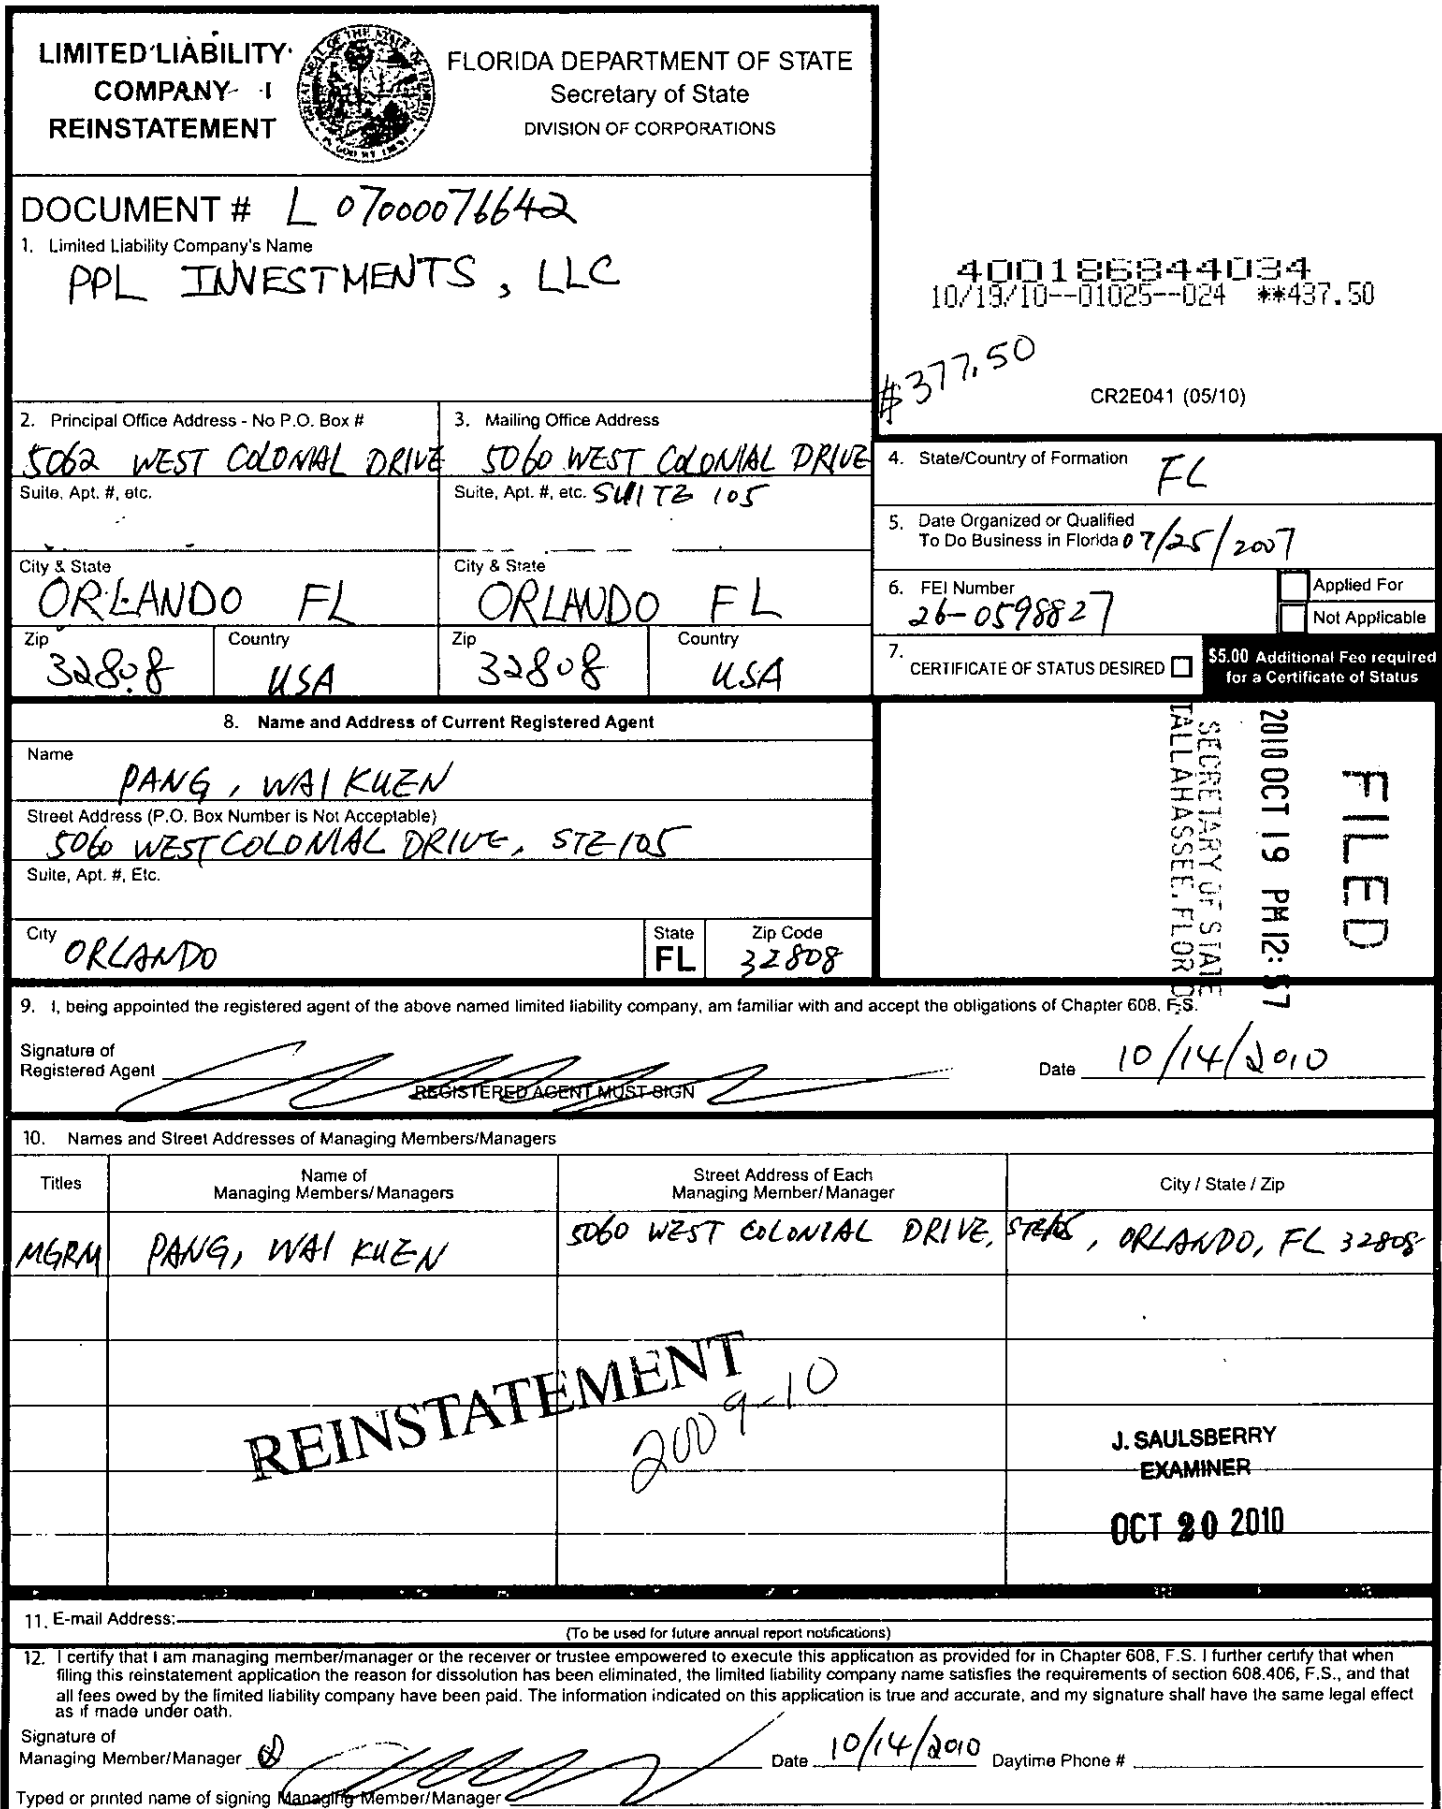 LIMITED LIABILITY
COMPANY
REINSTATEMENT
FLORIDA DEPARTMENT OF STATE
Secretary of State
DIVISION OF CORPORATIONS
DOCUMENT # L 07000076642
1. Limited Liability Company's Name
PPL INVESTMENTS, LLC
400186844034
10/19/10--01025--024 **437.50
$377.50
CR2E041 (05/10)
2. Principal Office Address - No P.O. Box #
5062 WEST COLONIAL DRIVE
Suite, Apt. #, etc.
City & State
ORLANDO FL
Zip
32808
Country
USA
3. Mailing Office Address
5060 WEST COLONIAL DRIVE
Suite, Apt. #, etc. SUITE 105
City & State
ORLANDO FL
Zip
32808
Country
USA
4. State/Country of Formation FL
5. Date Organized or Qualified
To Do Business in Florida 07/25/2007
6. FEI Number
26-0598827
Applied For
Not Applicable
7. CERTIFICATE OF STATUS DESIRED
$5.00 Additional Fee required
for a Certificate of Status
8. Name and Address of Current Registered Agent
Name
PANG, WAI KUEN
Street Address (P.O. Box Number is Not Acceptable)
5060 WEST COLONIAL DRIVE, STE 105
Suite, Apt. #, Etc.
City ORLANDO
State
FL
Zip Code
32808
FILED
2010 OCT 19 PM 12:57
SECRETARY OF STATE
TALLAHASSEE, FLORID
9. I, being appointed the registered agent of the above named limited liability company, am familiar with and accept the obligations of Chapter 608, F.S.
Signature of
Registered Agent
REGISTERED AGENT MUST SIGN
Date 10/14/2010
10. Names and Street Addresses of Managing Members/Managers
Titles
Name of
Managing Members/Managers
Street Address of Each
Managing Member/Manager
City / State / Zip
MGRM PANG, WAI KUEN 5060 WEST COLONIAL DRIVE, STE 105, ORLANDO, FL 32808
REINSTATEMENT
2009-10
J. SAULSBERRY
EXAMINER
OCT 20 2010
11. E-mail Address:
(To be used for future annual report notifications)
12. I certify that I am managing member/manager or the receiver or trustee empowered to execute this application as provided for in Chapter 608, F.S. I further certify that when
filing this reinstatement application the reason for dissolution has been eliminated, the limited liability company name satisfies the requirements of section 608.406, F.S., and that
all fees owed by the limited liability company have been paid. The information indicated on this application is true and accurate, and my signature shall have the same legal effect
as if made under oath.
Signature of
Managing Member/Manager
Date 10/14/2010 Daytime Phone #
Typed or printed name of signing Managing Member/Manager